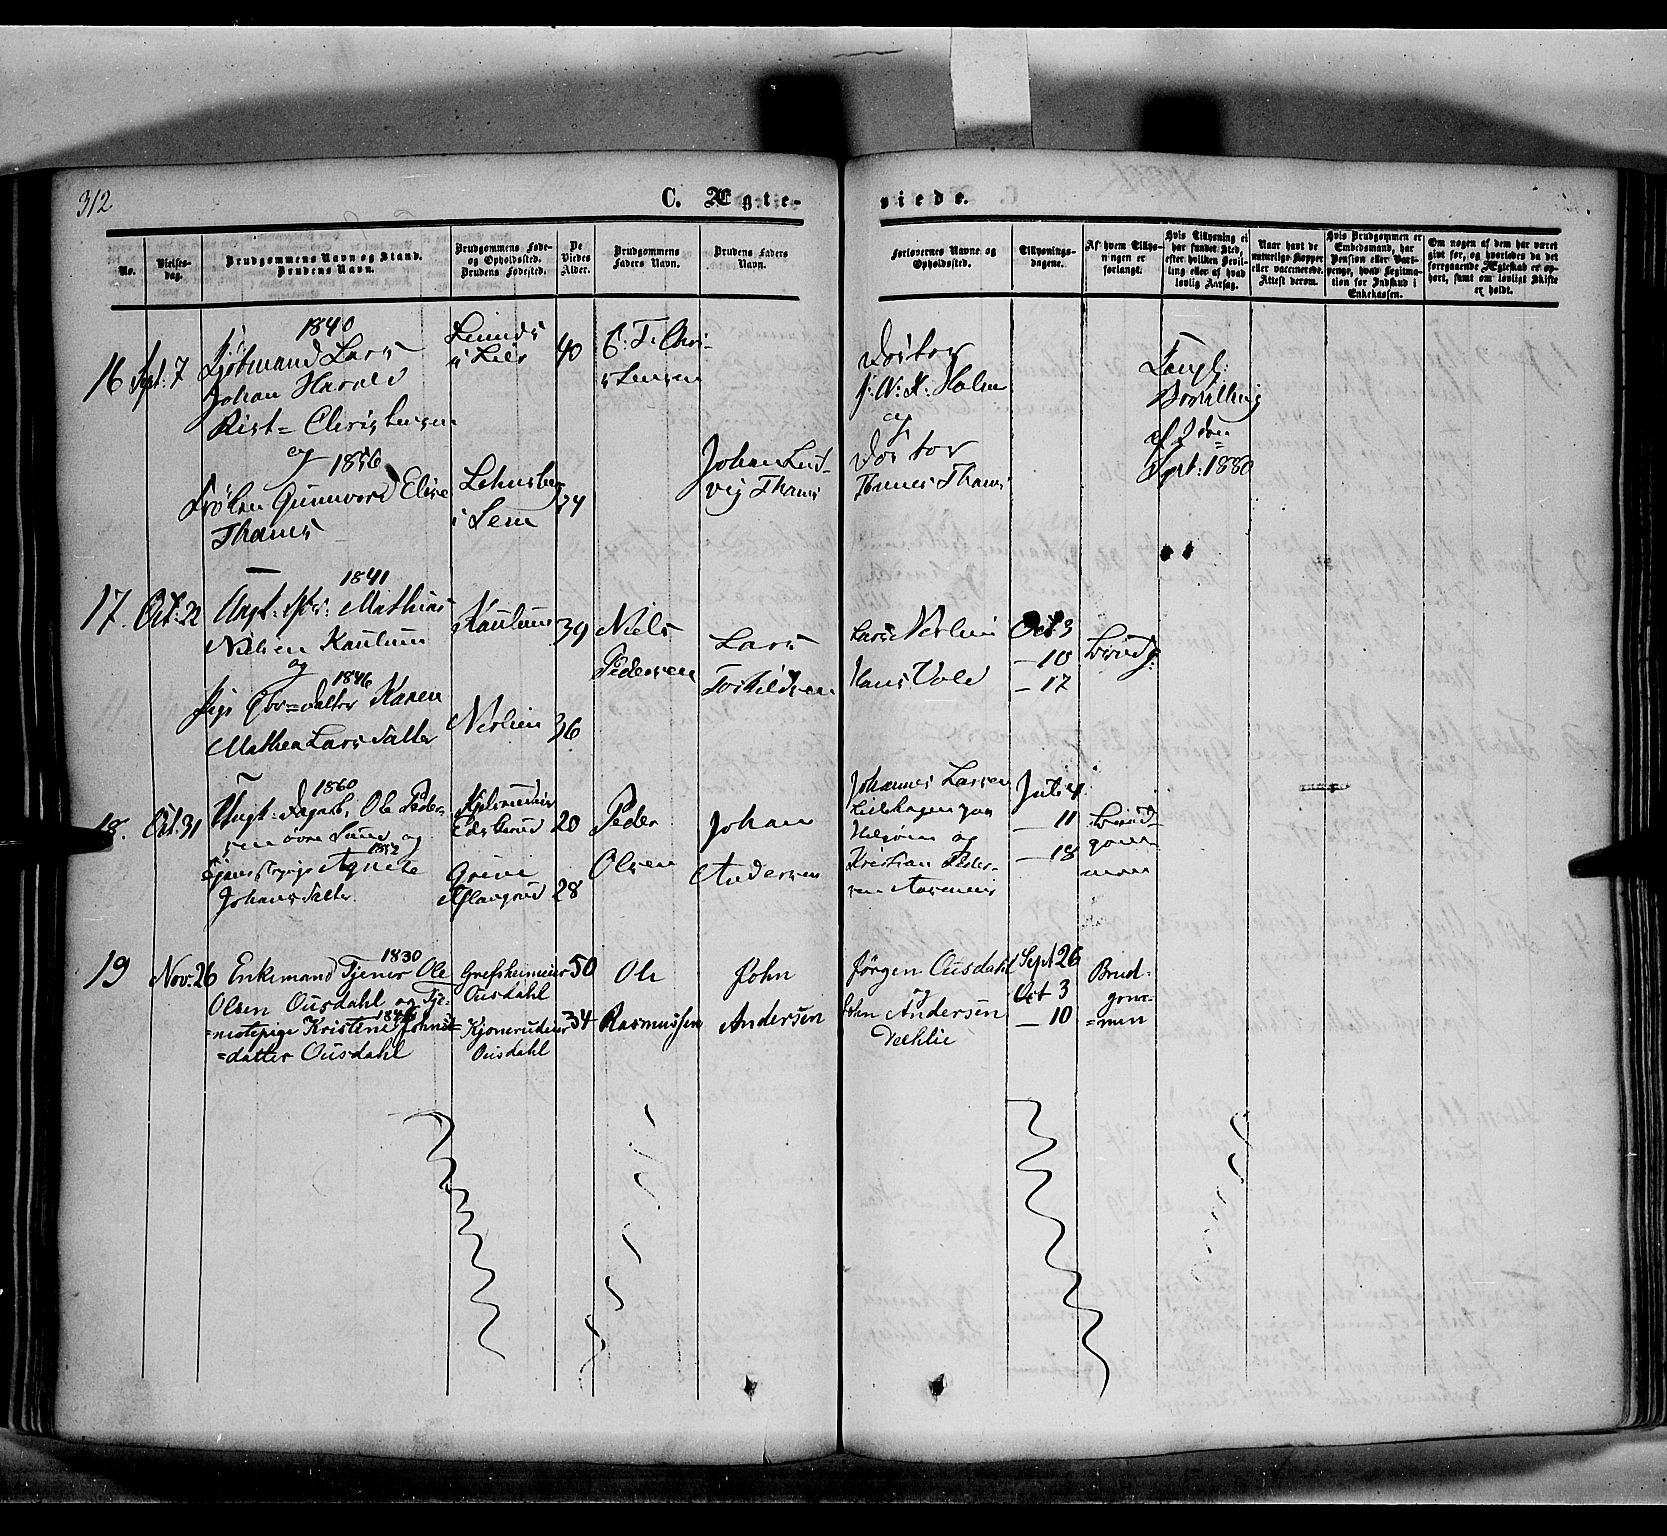 312
C. Ægte-
viede.
No.
Vielses-
dag.
Brudgommens Navn og Stand.
Brudens Navn.
Brudgommens Føde-
og Opholdssted.
Brudens Fødested.
De
Viedes
Alder.
Brudgommens
Faders Navn.
Brudens Faders
Navn.
Forlovernes Navne og
Opholdssted.
Tillysnings-
dagene.
Af hvem Tillys-
ningen er
forlangt.
Hvis Tillysning ei
har fundet Sted,
efter hvilken Bevil-
ling eller af hvad
lovlig Aarsag.
Naar havt de
naturlige Kopper
eller vaccinerede.
Attest derom.
Hvis Brudgommen er
Embedsmand, har
Pension eller Vart-
penge, hvad Legitima-
tion for Indskud i
Enkekassen.
Om nogen af dem har været
givt før, og hvorledes da det
foregaaende Ægteskab er op-
hørt, samt om lovligt Skifte
er holdt.
16 Spt: 7
1840
Lars
Johan Harald
Rist= Christensen
og 1856
Frøken Gunnvord Elise
Thams
i Lier
40
C. F. Chri-
stensen
i Lem
24
Johan Lud-
vig Thams
Doctor
J. N. K. Holm
og
Doctor
Thams
Kongl:
Bevilling
af 2 den
Spt: 1880
17. Oct: 22
1841
Ungk: Mathias
Nielsen Kaulum
og 1846
Pige Karen
Mathea Larsdatter
Kaulum
39
Nerlien
36
Niels
Pedersen
Lars
Torkildsen
Lars Nerlien
Hans Vold
Oct 3
— 10
— 17
Brudg:
18. Oct: 31
1860
Ungk: Ole Peder-
sen øvre og
1852
Agnete
Johansdatter
20
28
Peder
Olsen
Johan
Andersen
Johannes Larsen
Lilehagen paa
Helgøen og
Kristian Peder-
sen
Juli 4
— 11
— 18
Brud-
gom-
men
19 Nov: 26
1830
Enkemand Tjener Ole
Olsen Ousdahl og Tje-
1846
=nestepige Kristine Johns=
=datter Ousdahl
Grefsheimeier
Ousdahl
Kjonerudeier
Ousdahl
50
34
Ole
Rasmussen
John
Andersen
Jørgen Ousdahl
og
John Andersen
Dæhlie
Sept 26
Oct 3
— 10
Brud-
gom-
=men